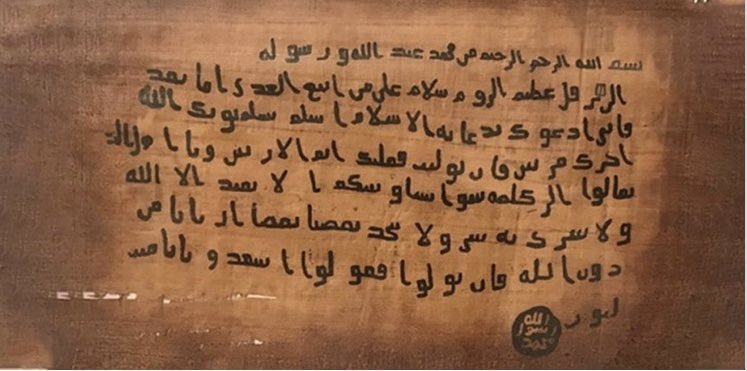 بسم الله الرحمن الرحيم من محمد عبد الله و رسوله
الى هرقل عظيم الروم سلام على من اتبع الهدى اما بعد
فانى ادعوك بدعاية الاسلام اسلم تسلم يوتك الله
اجرك مرتين فان توليت فعليك اثم الاريسين ويا اهل
تعالوا الى كلمة سوا بيننا وبينكم ا لا نعبد الا الله
ولا نشرك به شى ولا يتخذ بعضنا بعضا ار بابا من
دون الله فان تولوا فقولوا اشهدو بانا مس
لمون
الله
رسول
محمد